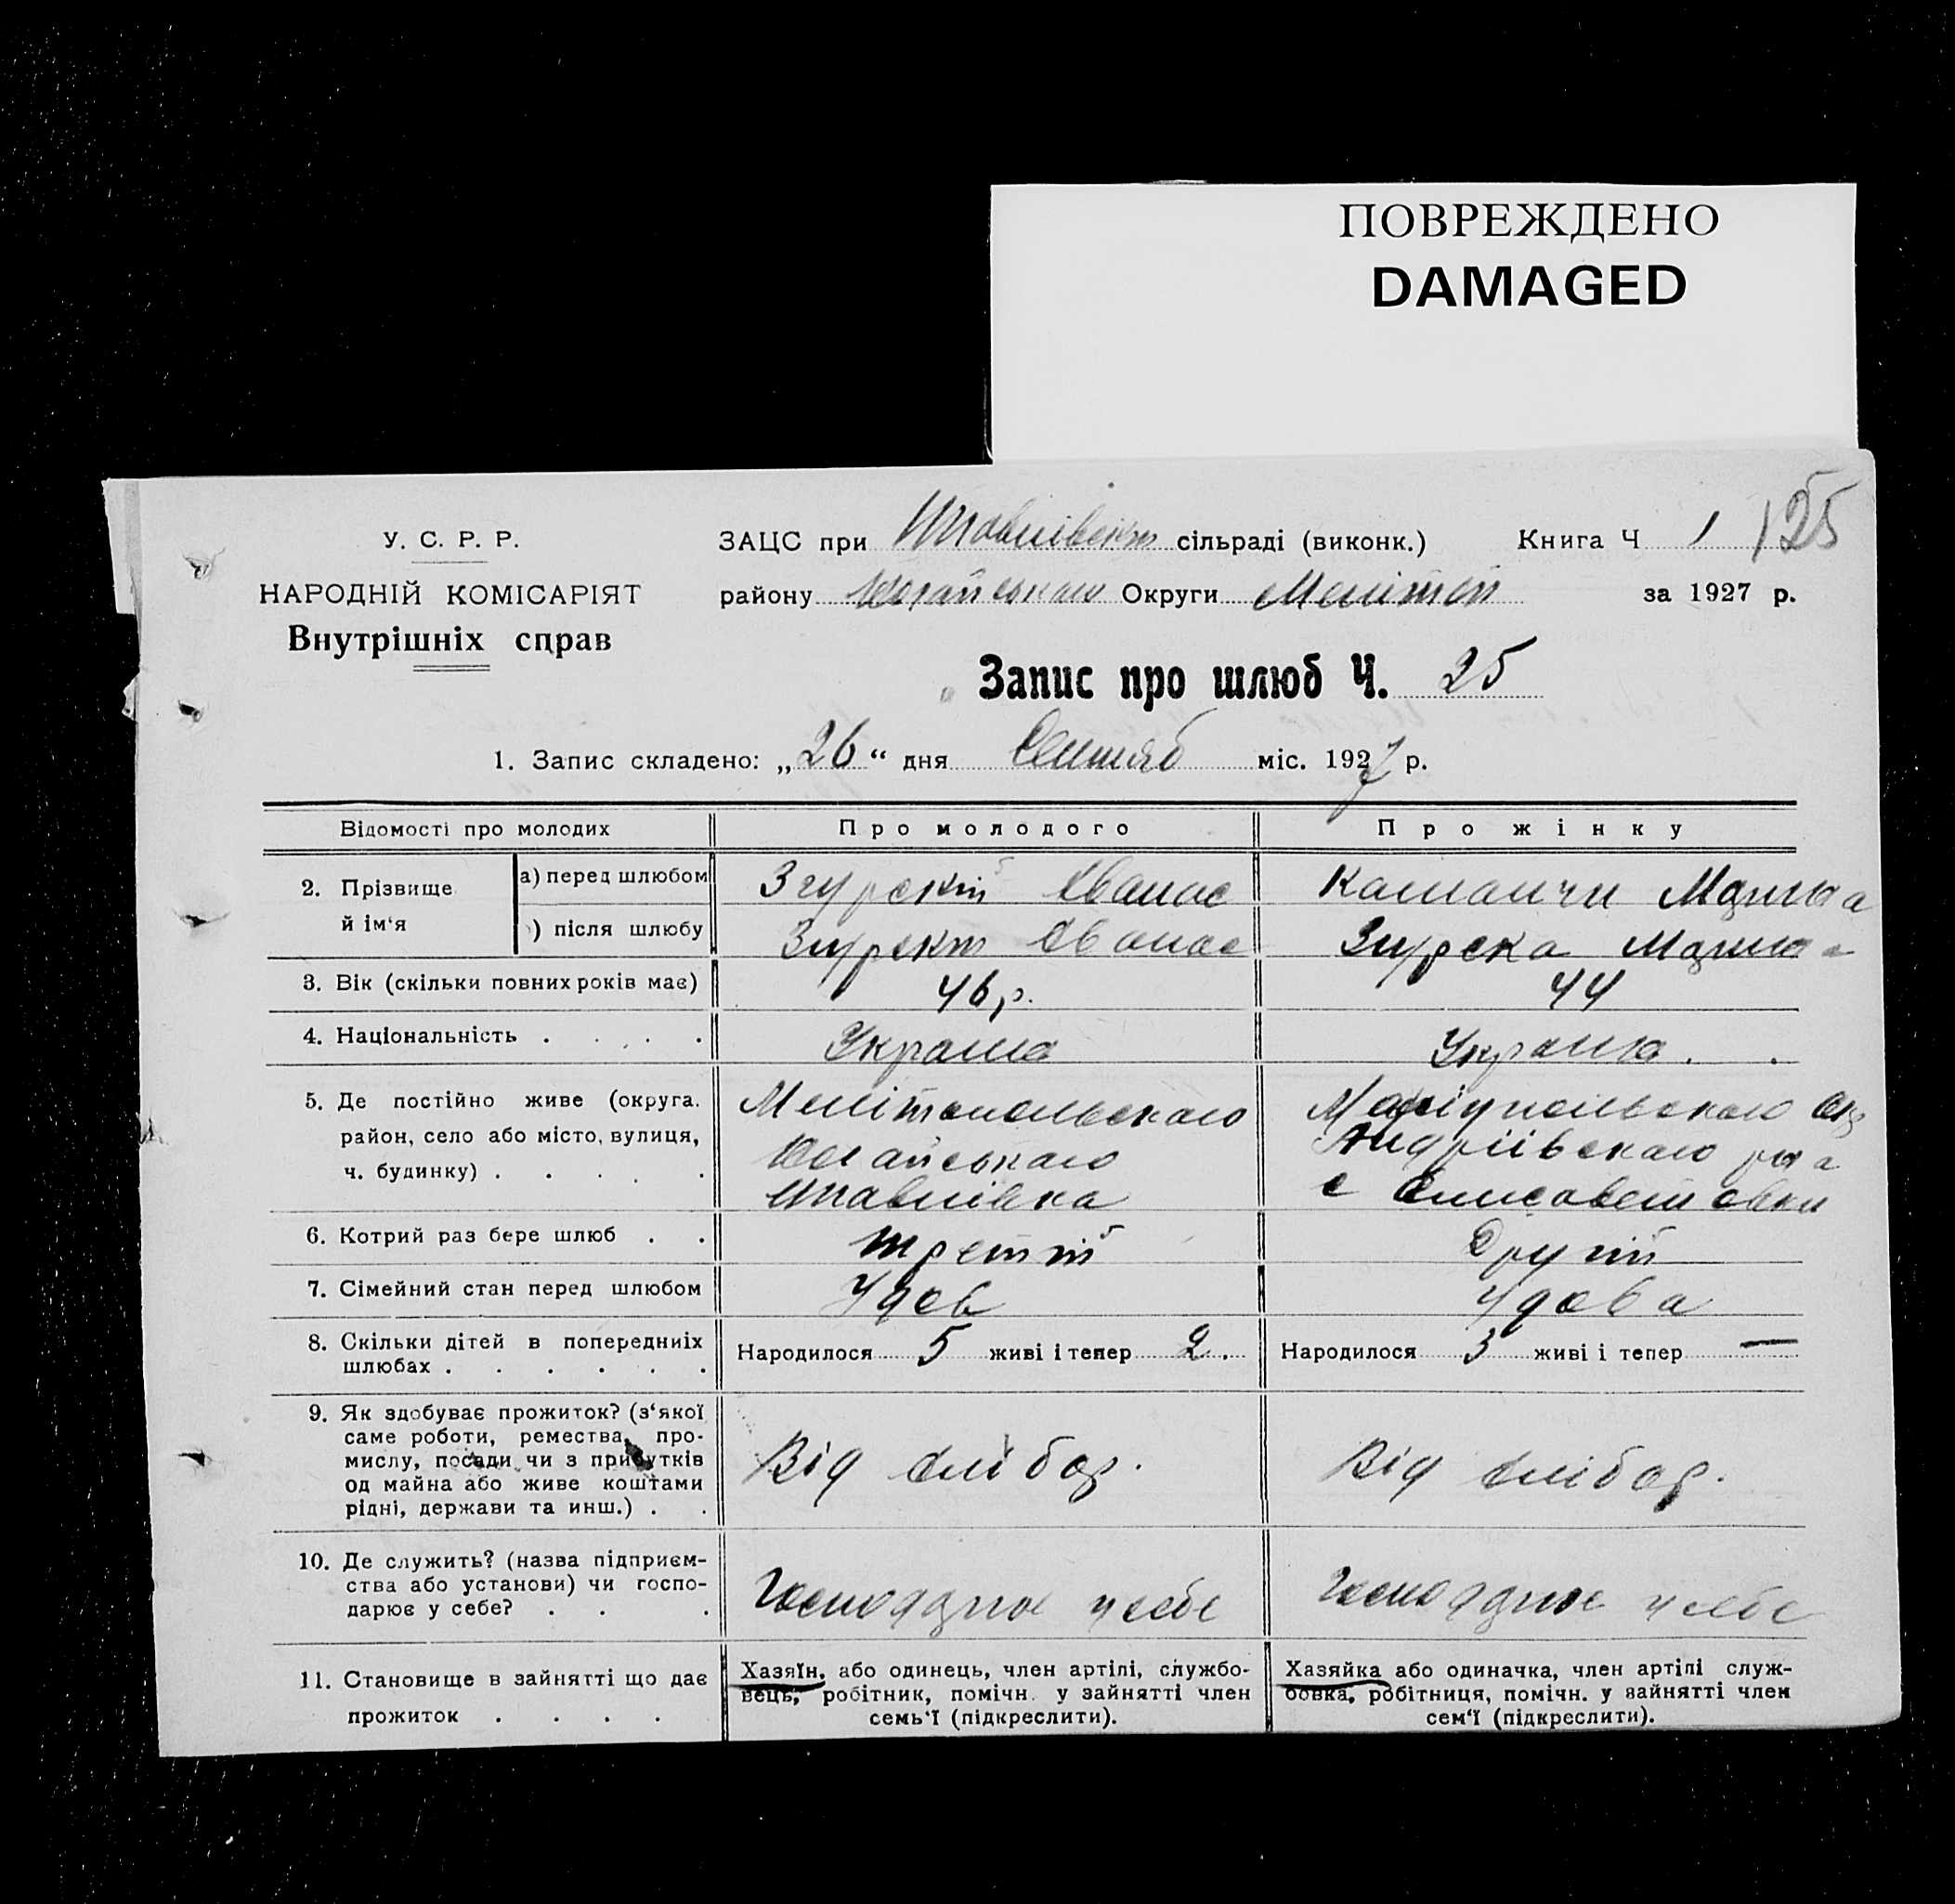 ПОВРЕЖДЕНО
DAMAGED
У. С. Р. Р.
НАРОДНІЙ КОМІСАРІЯТ
Внутрішніх справ
ЗАЦС при сільраді (виконк.) Книга Ч 1 125
району Округи Мелітоп за 1927 р.
Запис про шлюб Ч. 25
1. Запис складено: „26“ дня Сентяб міс. 1927 р.
Відомості про молодих Про молодого Про жінку
2. Прізвище й ім‘я
а) перед шлюбом Згурский Марина
) після шлюбу Згурска Марина
3. Вік (скільки повних років має) 46 р. 44
4. Національність . . . . Україна Україна.
5. Де постійно живе (округа. Мелітопольского Маріупольского Окр
район, село або місто, вулиця, Андріївского р-а
ч. будинку) . . . . . с Елисаветовки
6. Котрий раз бере шлюб . . третій Другий
7. Сімейний стан перед шлюбом Удов Удова
8. Скільки дітей в попередниіх Народилося 5 живі і тепер 2. Народилося 3 живі і тепер —
шлюбах . . . . . .
9. Як здобуває прожиток? (з‘якої
саме роботи, ремества, про-
мислу, посади чи з прибутків Від хлібор. Від хлібор.
од майна або живе коштами
рідні, держави та инш.) . .
10. Де служить? (назва підприєм-
ства або установи) чи госпо- Господарює у себе Господарює у себе
дарює у себе? . . .
11. Становище в зайнятті що дає
прожиток . . . .
Хазяїн, або одинець, член артілі, службо-
вець, робітник, помічн. у зайнятті член
семь‘ї (підкреслити).
Хазяйка або одиначка, член артілі служ-
бовка, робітниця, помічн. у зайнятті член
сем‘ї (підкреслити).